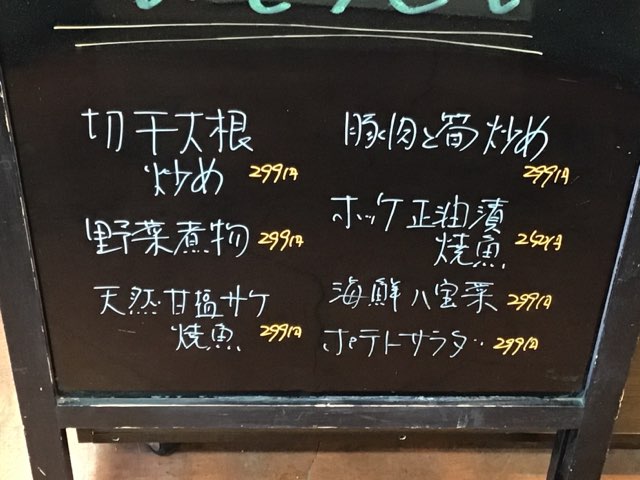 切干大根
炒め 299円
野菜煮物 299円
天然甘塩サケ
焼魚 299円
豚肉と筍炒め
299円
ホッケ正油漬
焼魚
海鮮八宝菜 299円
ポテトサラダ 299円